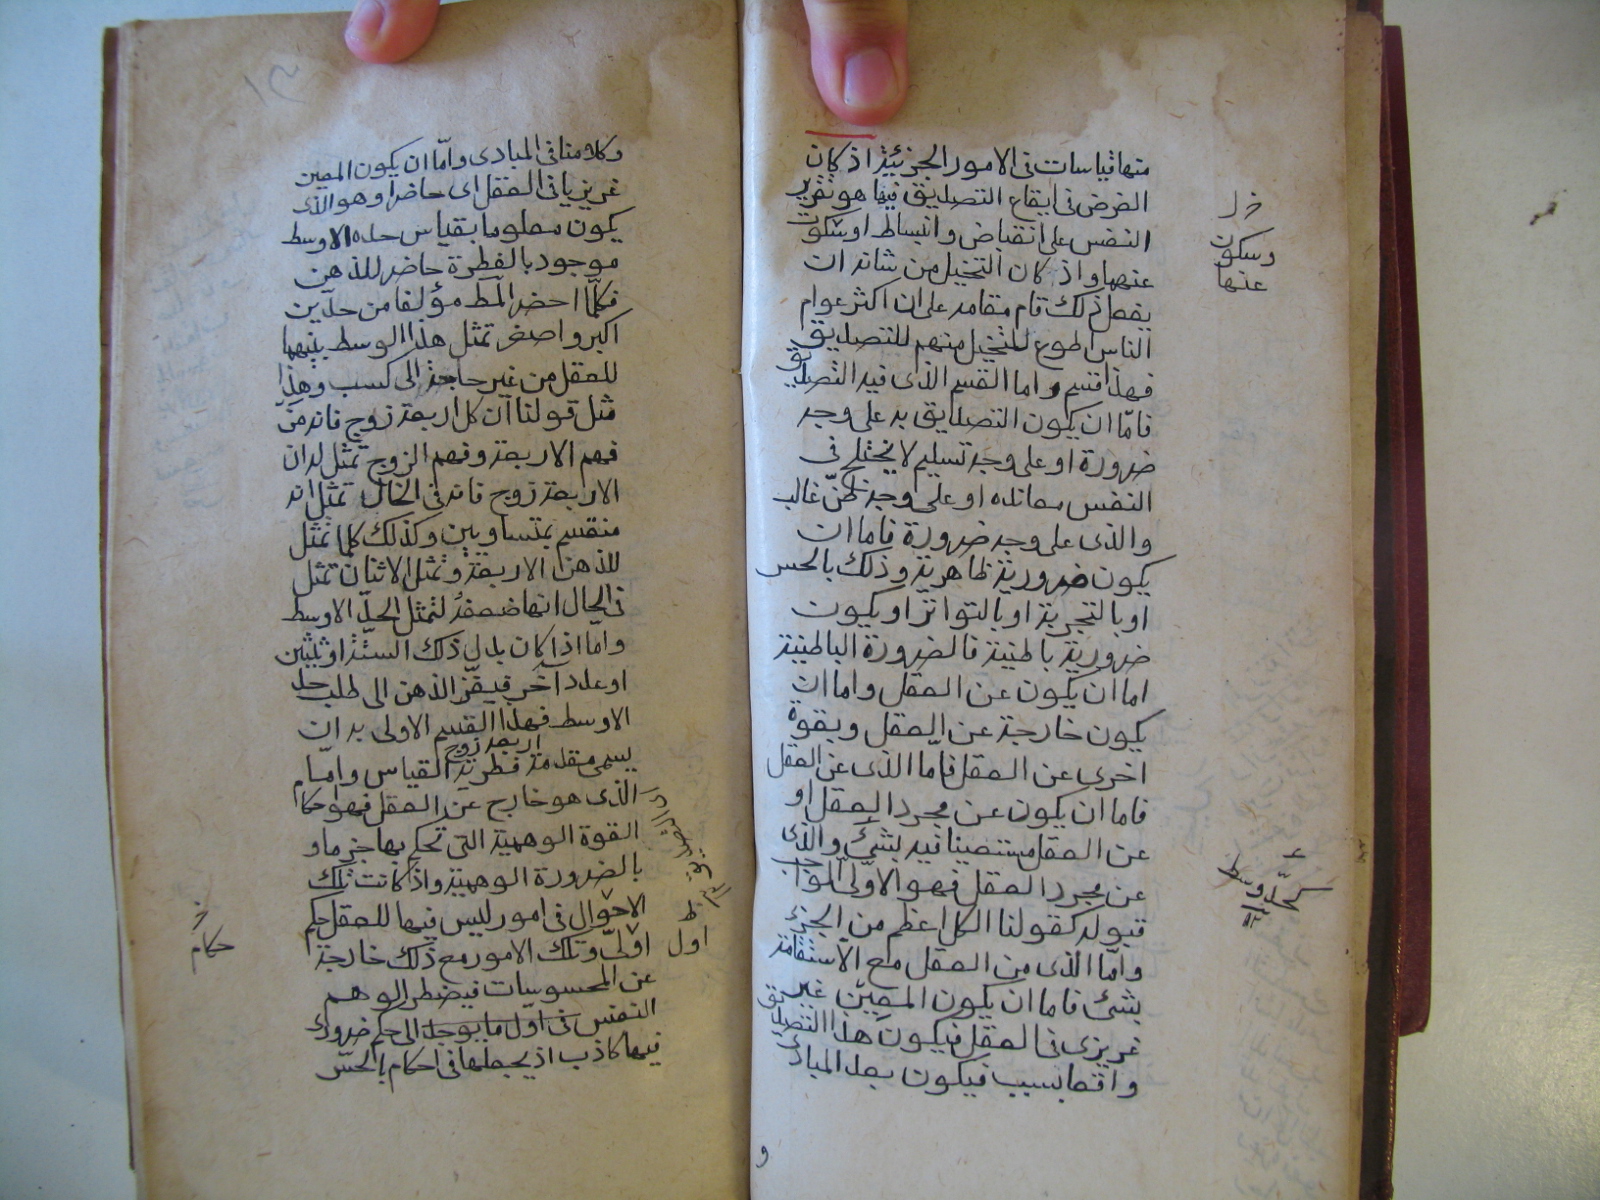 منها قياسات فى الامور الجزئية اذ كان
الغرض فى ايقاع التصديق فيها هو تقرير
النفس على انقباض وانبساط او سكون
عنهما واذ كان التخيل من شانه ان
يفعل ذلك قام مقامه على ان اكثر عوام
الناس اطوع للتخيل منهم للتصديق
فهذا قسم واما القسم الذى فيه التصديق
فامّا ان يكون التصديق به على وجه
ضرورة او على وجه تسليم لا يختلج فى
النفس معانده او على وجه ظنّ غالب
والذى على وجه ضرورة فاما ان
يكون ضرورية ظاهرية وذلك بالحس
او بالتجربة او بالتواتر او يكون
ضرورية باطنية فالضرورة الباطنية
اما ان يكون عن العقل واما ان
يكون خارجة عن العقل وبقوة
اخرى عن العقل فامّا الذى عن العقل
فاما ان يكون عن مجرد العقل او
عن العقل مستعينا فيه بشئ والذى
عن مجرد العقل فهو الاولىّ الواجب
قبوله كقولنا الكل اعظم من الجزء
وامّا الذى من العقل مع الاستعانة
بشئ فاما ان يكون المعين غير
غريزى فى العقل فيكون هذا التصديق
واقعا بسبب فيكون بعد المبادى
خ ل
وسكون
عنها
وكلامنا فى المبادى وامّا ان يكون المعين
غريزيا فى العقل اى حاضرا وهو الذى
يكون معلوما بقياس حده الاوسط
موجود بالفطرة حاضر للذهن
فكلّما احضر المط مؤلفا من حدّين
اكبر واصغر تمثل هذا الوسط بينهما
للعقل من غير حاجة الى كسب وهذا
مثل قولنا ان كل اربعة زوج فانه من
فهم الاربعة وفهم الزوج تمثل له ان
الاربعة زوج فانه فى الحال تمثل انه
منقسم بمتساويين وكذلك كلما تمثل
للذهن الاربعة وتمثل الاثنان تمثل
فى الحال انها ضعفه لتمثل الحدّ الاوسط
وامّا اذا كان بدل ذلك الستة
او عدد آخر فيفتقر الذهن الى طلب حد
الاوسط فهذا القسم الاولى به ان
يسمى مقدمة فطرية القياس وامّا
اربعة زوج
الذى هو خارج عن العقل فهو احكام
القوة الوهمية التى تحكم بها جزما و
بالضرورة الوهمية واذا كانت تلك
الاحوال فى امور ليس فيها للعقل حكم
اوّلىّ وتلك الامور مع ذلك خارجة
عن المحسوسات فيضطر الوهم
النفس فى اوّل ما يوجد الى حكم ضرورى
فيها كاذب اذ يجعلها فى احكام بالحسّ
ظ
اول
خ
حكام
و